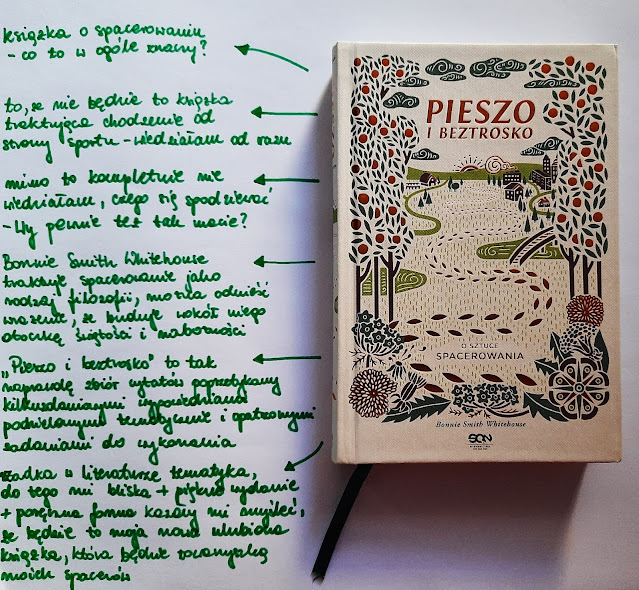 książka o spacerowaniu
- co to w ogóle znaczy?
to, że nie będzie to książka
traktująca chodzenie od
strony sportu - wiedziałam od razu
mimo to kompletnie nie
wiedziałam, czego się spodziewać
- Wy pewnie też tak macie?
Bonnie Smith Whitehouse
traktuje spacerowanie jako
rodzaj filozofii, można odnieść
wrażenie, że buduje wokół niego
otoczkę świętości i nabożności
„Pieszo i beztrosko" to tak
naprawdę zbiór cytatów poprzetykany
kilkuzdaniowymi wypowiedziami
podzielonymi tematycznie i opatrzonymi
zadaniami do wykonania
rzadka w literaturze tematyka,
do tego mi bliska + piękne wydanie
+ poręczna forma kazały mi myśleć,
że będzie to moja nowa ulubiona
książka, która będzie towarzyszką
moich spacerów
PIESZO
I BEZTROSKO
O SZTUCE
SPACEROWANIA
Bonnie Smith Whitehouse
SQN